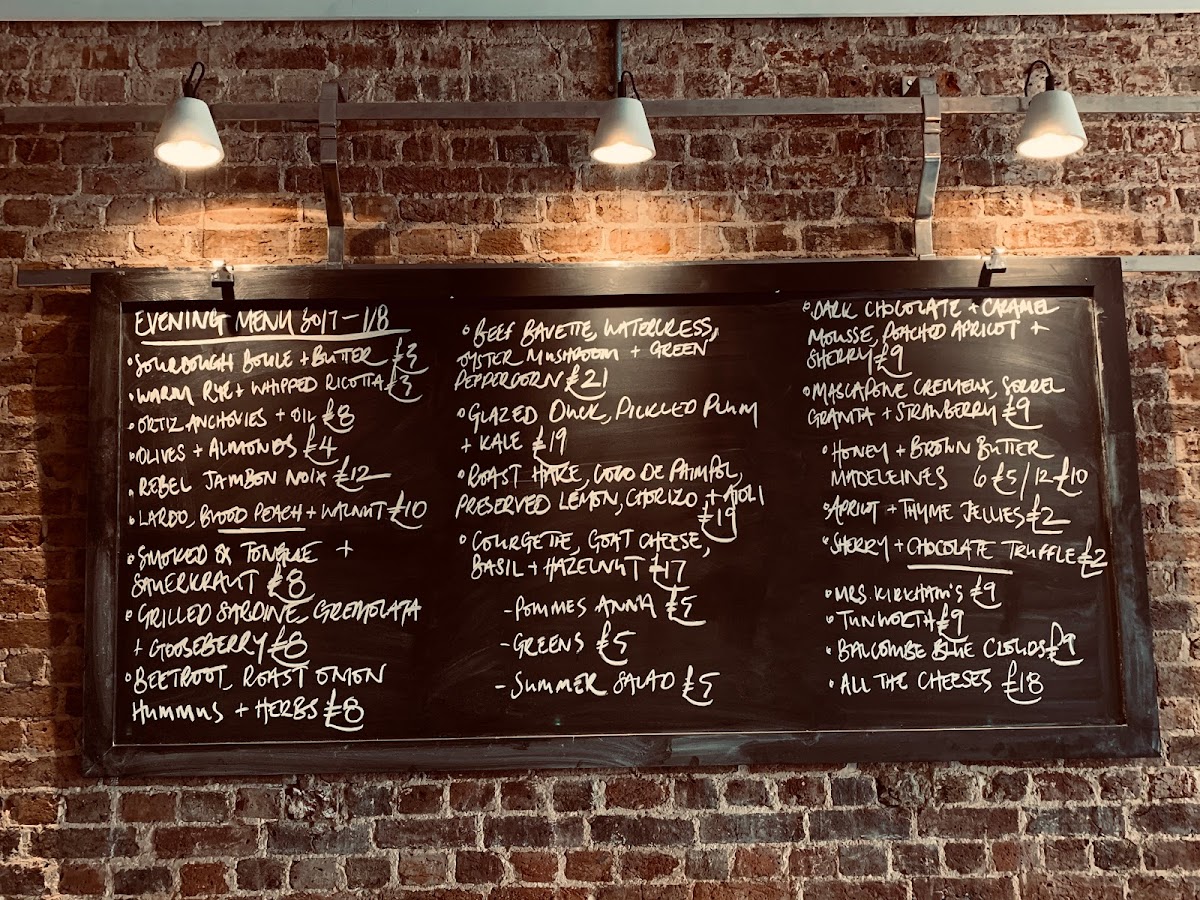 EVENING MENU 30/7 - 1/8
• SOURDOUGH BOULE + BUTTER £3
• WARM RYE + WHIPPED RICOTTA £3
• ORTIZ ANCHOVIES + OIL £8
• OLIVES + ALMONDS £4
• REBEL JAMBON NOIX £12
• LARDO, BLOOD PEACH + WALNUT £10
• SMOKED OX TONGUE +
SAUERKRAUT £8
• GRILLED SARDINE, GREMOLATA
+ GOOSEBERRY £8
• BEETROOT, ROAST ONION
HUMMUS + HERBS £8
• BEEF BAVETTE, WATERCRESS,
OYSTER MUSHROOM + GREEN
PEPPERCORN £21
• GLAZED DUCK, PICKLED PLUM
+ KALE £19
• ROAST HAKE, COCO DE PAIMPOL,
PRESERVED LEMON, CHORIZO + AIOLI
£19
• COURGETTE, GOAT CHEESE,
BASIL + HAZELNUT £17
- POMMES ANNA £5
- GREENS £5
- SUMMER SALAD £5
• DARK CHOCOLATE + CARAMEL
MOUSSE, POACHED APRICOT +
SHERRY £9
• MASCAPONE CREMEUX, SORREL
GRANITA + STRAWBERRY £9
• HONEY + BROWN BUTTER
MADELEINES 6 £5 / 12 £10
• APRICOT + THYME JELLIES £2
• SHERRY + CHOCOLATE TRUFFLE £2
• MRS. KIRKHAM'S £9
• TUNWORTH £9
• BALCOMBE BLUE CLOUDS £9
• ALL THE CHEESES £18